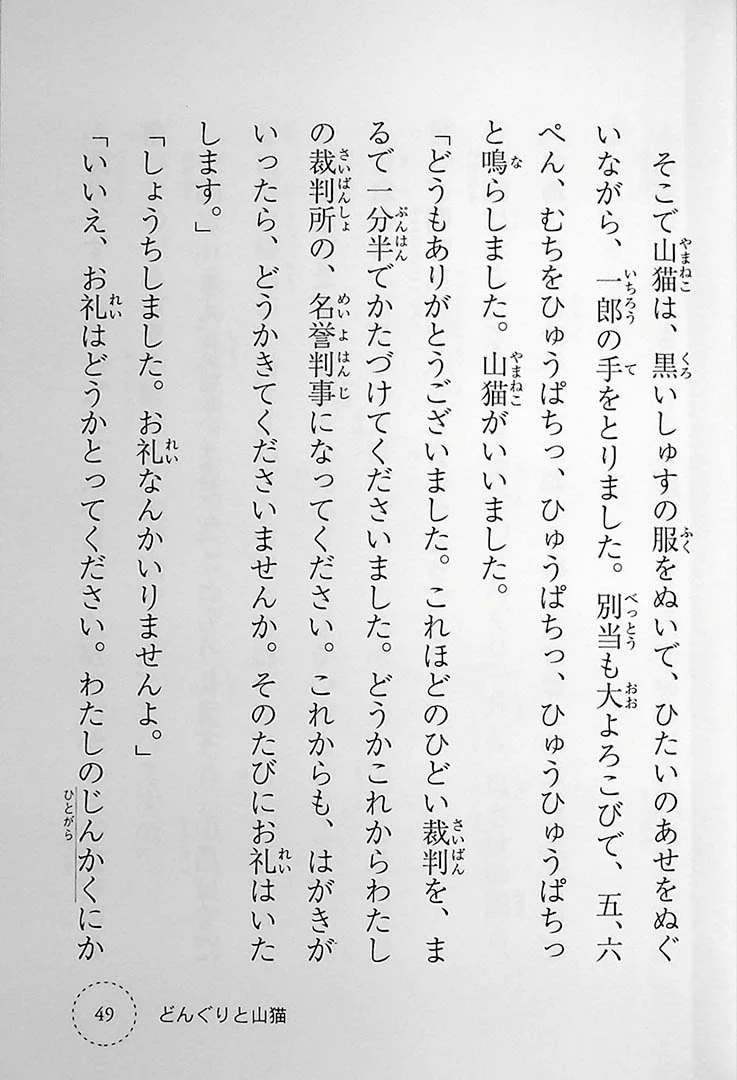 そこで山猫は、黒いしゅすの服をぬいで、ひたいのあせをぬぐ
いながら、一郎の手をとりました。別当も大よろこびで、五、六
ぺん、むちをひゅうぱちっ、ひゅうぱちっ、ひゅうひゅうぱちっ
と鳴らしました。山猫がいいました。
「どうもありがとうございました。これほどのひどい裁判を、ま
るで一分半でかたづけてくださいました。どうかこれからわたし
の裁判所の、名誉判事になってください。これからも、はがきが
いったら、どうかきてくださいませんか。そのたびにお礼はいた
します。」
「しょうちしました。お礼なんかいりませんよ。」
「いいえ、お礼はどうかとってください。わたしのじんかくにか
ひとがら
49 どんぐりと山猫